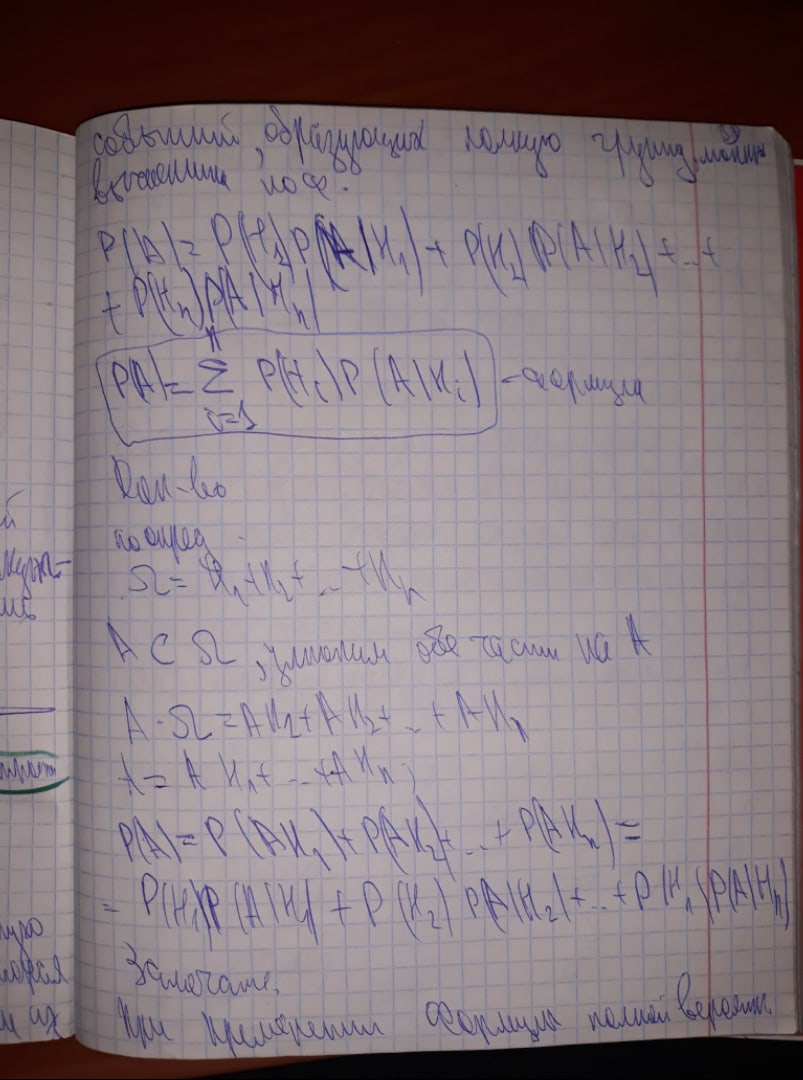 событий, образующих полную группу, можно
вычислить по ф.
P(A) = P(H₁)P(A|H₁) + P(H₂)P(A|H₂) + ... +
+ P(Hₙ)P(A|Hₙ)
n
P(A) = Σ P(Hᵢ)P(A|Hᵢ) - формула
i=1
Док-во
по опред.
Ω = H₁+H₂+ ... +Hₙ
A ⊂ Ω, умножим обе части на A
A·Ω = AH₁+AH₂+ ... + AHₙ
A = AH₁+ ... +AHₙ;
P(A) = P(AH₁)+P(AH₂)+ ... + P(AHₙ) =
= P(H₁)P(A|H₁) + P(H₂)P(A|H₂)+ ... +P(Hₙ)P(A|Hₙ)
Замечание.
При применении формулы полной вероятн